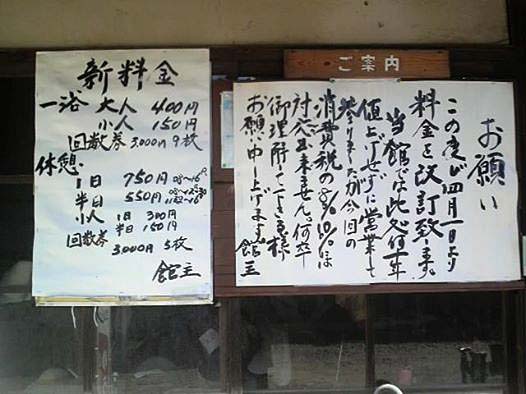 新料金
一浴 大人 400円
小人 150円
回数券 3,000円 9枚
休憩
1日 750円
半日 550円
小人 1日 300円
半日 150円
回数券
3,000円 5枚
館主
ご案内
お願い
この度四月一日より
料金を改訂致します。
当館では此必何十年
値上げせずに営業して
参りましたが今回の
消費税の8%10%は
対応出来ません。何卒
御理解て下さる様
お願い申し上げます。館主